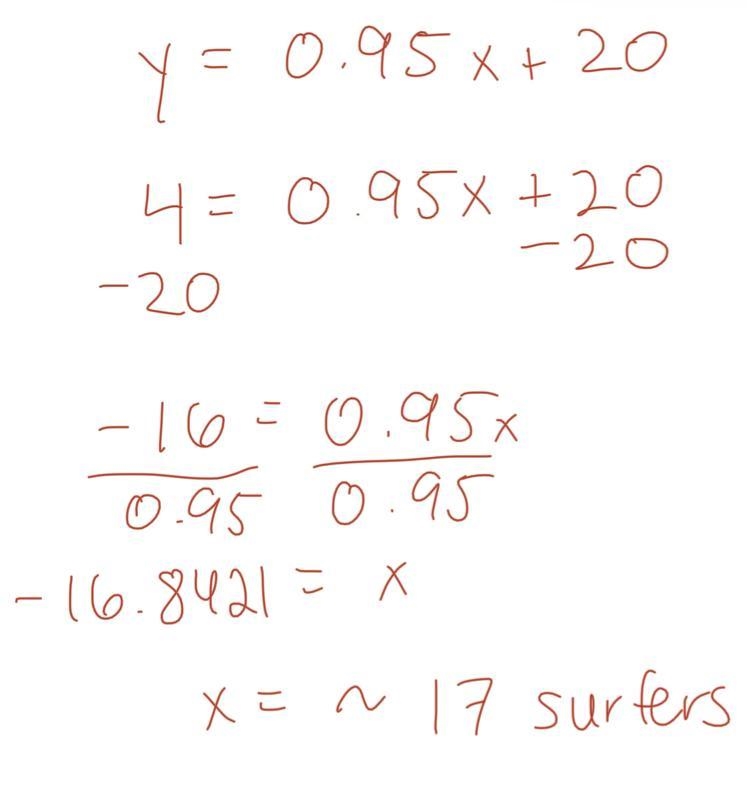 y = 0.95x + 20
4 = 0.95x + 20
-20
-20
-16 = 0.95x
0.95 0.95
-16.8421 = x
x = ~ 17 surfers